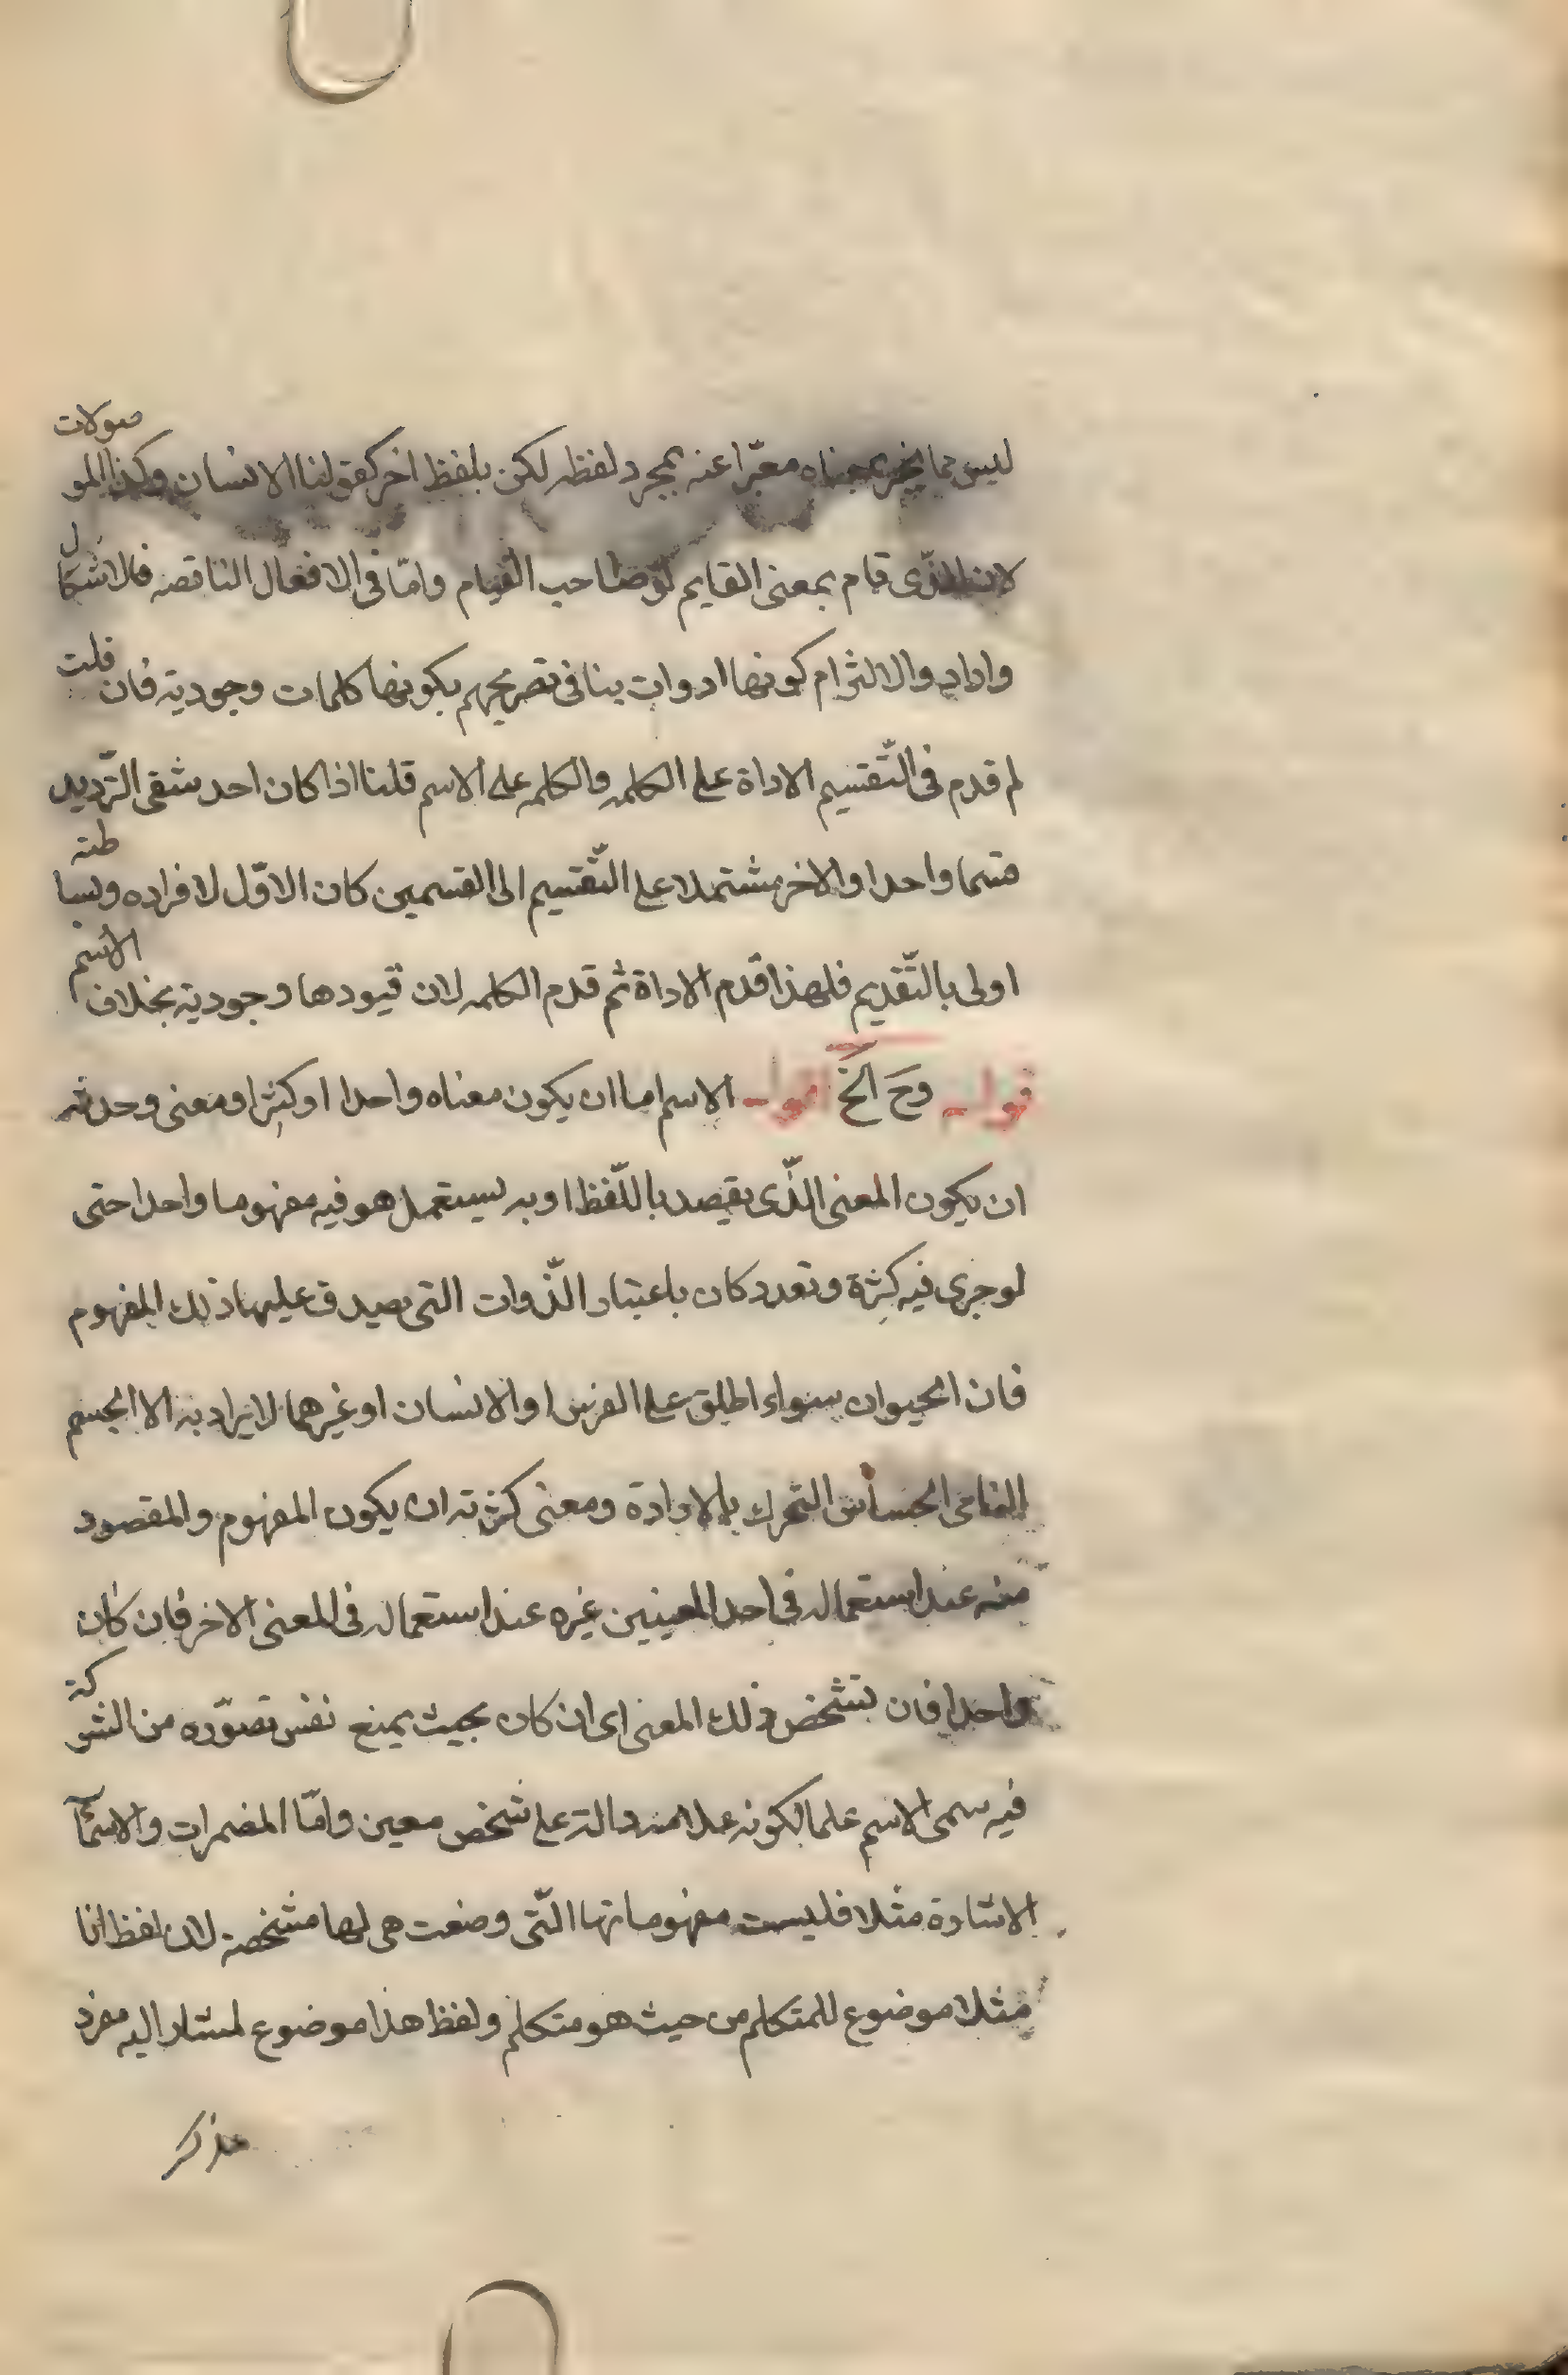 ليس مما يخبر بمعناه معبّرا عنه بمجرد لفظه لكن بلفظ اخر كقولنا الانسان وكذا الموصولات
لان الذّى قام بمعنى القايم او صاحب القيام وامّا فى الافعال الناقصه فالاشكال
وارد والالتزام كونها ادوات ينافى تصريحهم بكونها كلمات وجوديّة فان قلت
لم قدم فى التّقسيم الاداة على الكلمه والكلمه على الاسم قلنا اذا كان احد شقى التّرديد
قسما واحدا والاخر مشتملا على التّقسيم الى القسمين كان الاوّل لافراده وبساطته
اولى بالتّقديم فلهذا قدم الاداة ثم قدم الكلمه لان قيودها وجوديّة بخلاف الاسم
قوله وح الخ اقول الاسم اما ان يكون معناه واحدا او كثيرا ومعنى وحدته
ان يكون المعنى الذّى يقصد باللّفظ او به يستعمل هو فيه مفهوما واحدا حتى
لو جرى فيه كثرة وتعدد كان باعتبار الذّوات التى يصدق عليها ذلك المفهوم
فان الحيوان سواء اطلق على الفرس او الانسان او غيرهما لا يراد به الا الجسم
النامى الحساس التحرك بالارادة ومعنى كثرته ان يكون المفهوم والمقصود
منه عند استعماله فى احد المعنيين غيره عند استعماله فى المعنى الاخر فان كان
واحدا فان تشخص ذلك المعنى اى ان كان بحيث يمنع نفس تصوّره من الشركة
فيه سمى الاسم علما لكونه علامة دالة على شخص معين وامّا المضمرات والاسماء
الاشارة مثلا فليست مفهوماتها الّتى وضعت هى لها مشخصة لان لفظ انا
مثلا موضوع للمتكلم من حيث هو متكلم ولفظ هذا موضوع لمشار اليه مفرد